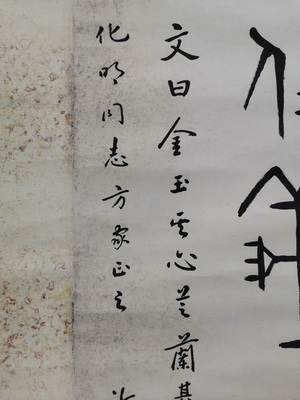 文曰金玉其心芝蘭其
化明同志方家正之